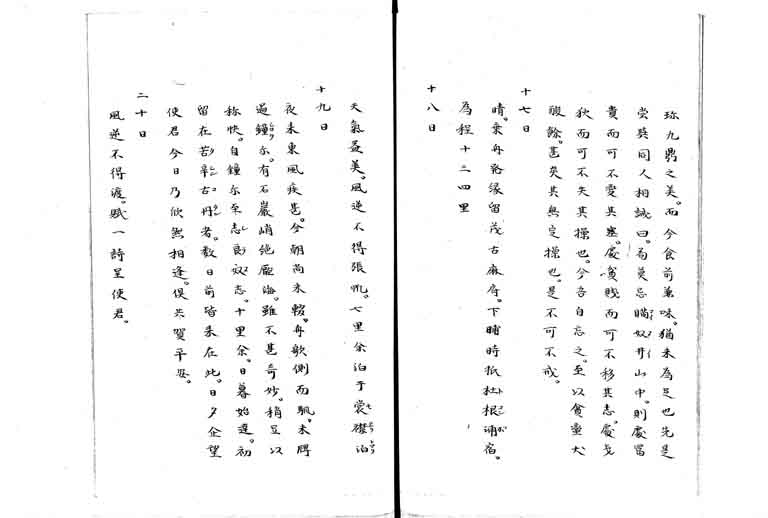 珎九鼎之美。而今食前兼味。猶未為足也先是
嘗與同人相誡曰。苟莫忘 奴 山中。則處富
貴而可不變其塞。處貧賤而可不移其志。處戎
狄而可不失其操也。今各自忘之。至以貪童犬
餘。甚矣其無定操也。是不可不戒。
十七日
晴。乗舟發縁留茂古麻府。下晡時抵杜根浦宿。
為程十二四里
十八日
天氣益美。風逆不得張帆。七里余泊于裳襟泊
十九日
夜来東風疾甚。今朝尚未輟。舟欹側而颿。未牌
過鐘尓。有石巌峭絶壓海。雖不甚奇妙。稍足以
称快。自鐘尓至志良奴志。十里余。日暮始達。初
留在苦辛古丹者。数日前皆来在此。日夕企望
使君今日乃欣然相逢。倶共賀平安。
二十日
風逆不得渡。賦一詩呈使君。